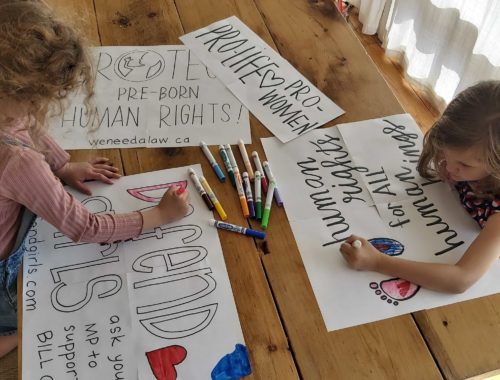 PROTEC
PRE-BORN
HUMAN RIGHTS!
weneedalaw.ca
PROLIFE
PRO-
WOMEN
human
rights
for ALL
human
Defend
GIRLS
ndgirls.com
ask you
MP to
support
BILL C